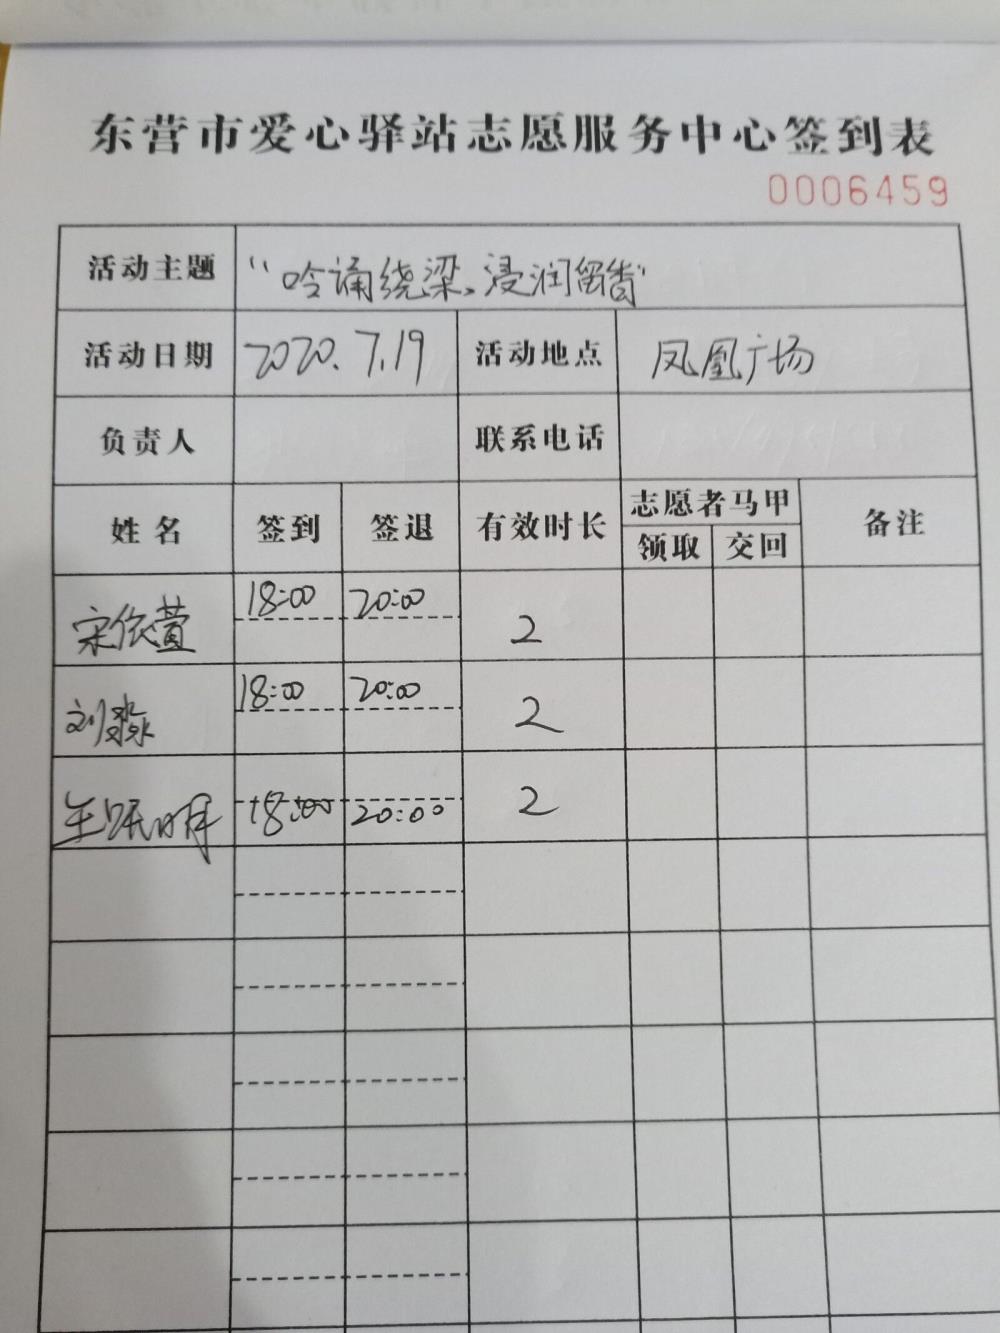 东营市爱心驿站志愿服务中心签到表
0006459
活动主题 “吟诵绕梁、浸润留香”
活动日期 2020.7.19 活动地点 凤凰广场
负责人 联系电话
姓名 签到 签退 有效时长 志愿者马甲 备注
领取 交回
宋依萱 18:00 20:00 2
刘淼 18:00 20:00 2
18:00 20:00 2